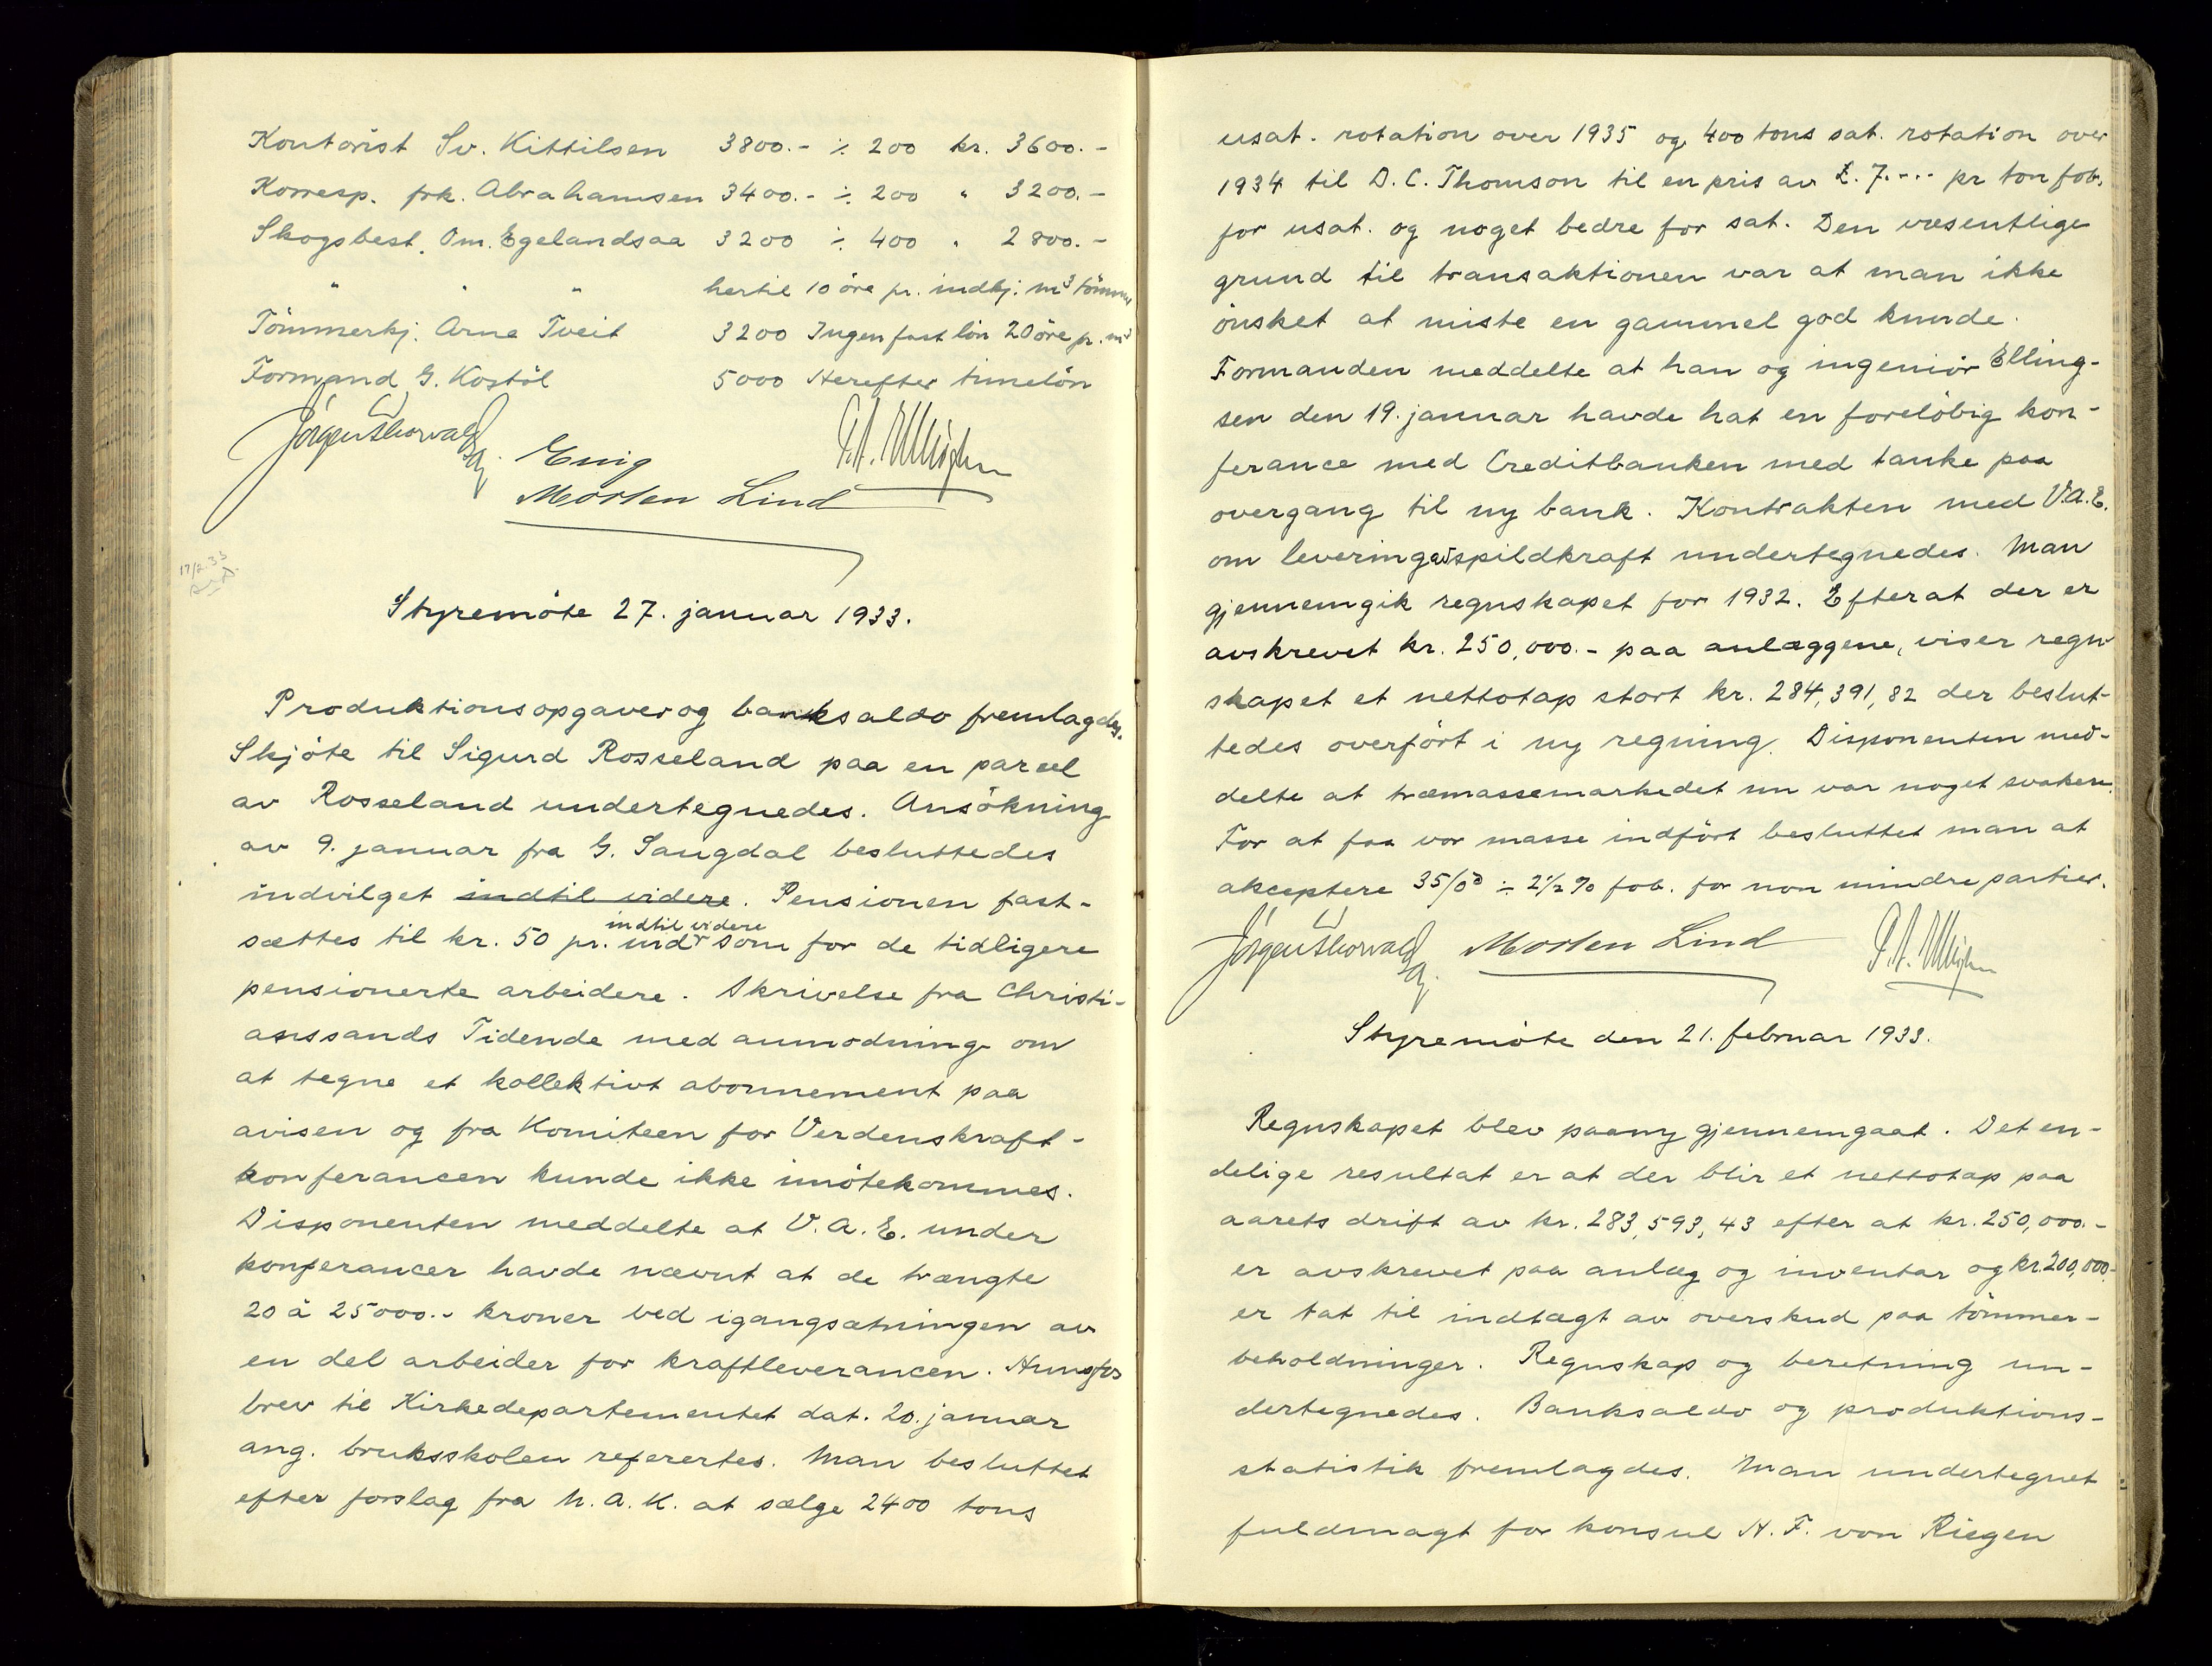 Kontorist Sv. Kittilsen 3800.- ÷ 200 kr. 3600.-
Korresp. frk. Abrahamsen 3400.- ÷ 200 " 3200.-
Skogsbest. Om. Egelandsaa 3200 ÷ 400 " 2800.-
" " " hertil 10 öre pr. indkj. m³ tömmer
Tömmerkj. Arne Tveit 3200 Ingen fast lön 20 öre pr. m³
Formand G. Kostöl 5000 Herefter timelön
Morten Lind
17/2 33
Styremöte 27. januar 1933.
Produktionsopgaver og banksaldo fremlagdes.
Skjöte til Sigurd Rosseland paa en parcel
av Rosseland undertegnedes. Ansökning
av 9. januar fra G. Saugdal besluttedes
indvilget indtil videre. Pensionen fast-
indtil videre
sættes til kr. 50 pr. md som for de tidligere
pensionerte arbeidere. Skrivelse fra Christi-
anssands Tidende med anmodning om
at tegne et kollektivt abonnement paa
avisen og fra Komiteen for Verdenskraft-
konferancen kunde ikke imötekommes.
Disponenten meddelte at V.A.E. under
konferancer havde nævnt at de trængte
20 à 25000.- kroner ved igangsætningen av
en del arbeider for kraftleverancen. Hunsfos
brev til Kirkedepartementet dat. 20. januar
ang. bruksskolen referertes. Man besluttet
efter forslag fra N.A.K. at sælge 2400 tons
usat. rotation over 1935 og 400 tons sat. rotation over
1934 til D.C. Thomson til en pris av £. 7.-.- pr ton fob.
for usat. og noget bedre for sat. Den væsentlige
grund til transaktionen var at man ikke
önsket at miste en gammel god kunde.
Formanden meddelte at han og ingeniör Elling-
sen den 19. januar havde hat en forelöbig kon-
ferance med Creditbanken med tanke paa
overgang til ny bank. Kontrakten med V.A.E.
om levering av spildkraft undertegnedes. Man
gjennemgik regnskapet for 1932. Efterat der er
avskrevet kr. 250,000.- paa anlæggene, viser regn-
skapet et nettotap stort kr. 284,391,82 der beslut-
tedes overfört i ny regning. Disponenten med-
delte at træmassemarkedet nu var noget svakere.
For at faa vor masse indfört besluttet man at
akceptere 35/0ᵈ ÷ 2½ % fob. for non mindre partier.
Morten Lind
Styremöte den 21. februar 1933.
Regnskapet blev paany gjennemgaat. Det en-
delige resultat er at der blir et nettotap paa
aarets drift av kr. 283,593,43 efter at kr. 250,000.-
er avskrevet paa anlæg og inventar og kr. 200,000.-
er tat til indtægt av overskud paa tömmer-
beholdninger. Regnskap og beretning un-
dertegnedes. Banksaldo og produktions-
statistik fremlagdes. Man undertegnet
fuldmagt for konsul H.F. von Riegen